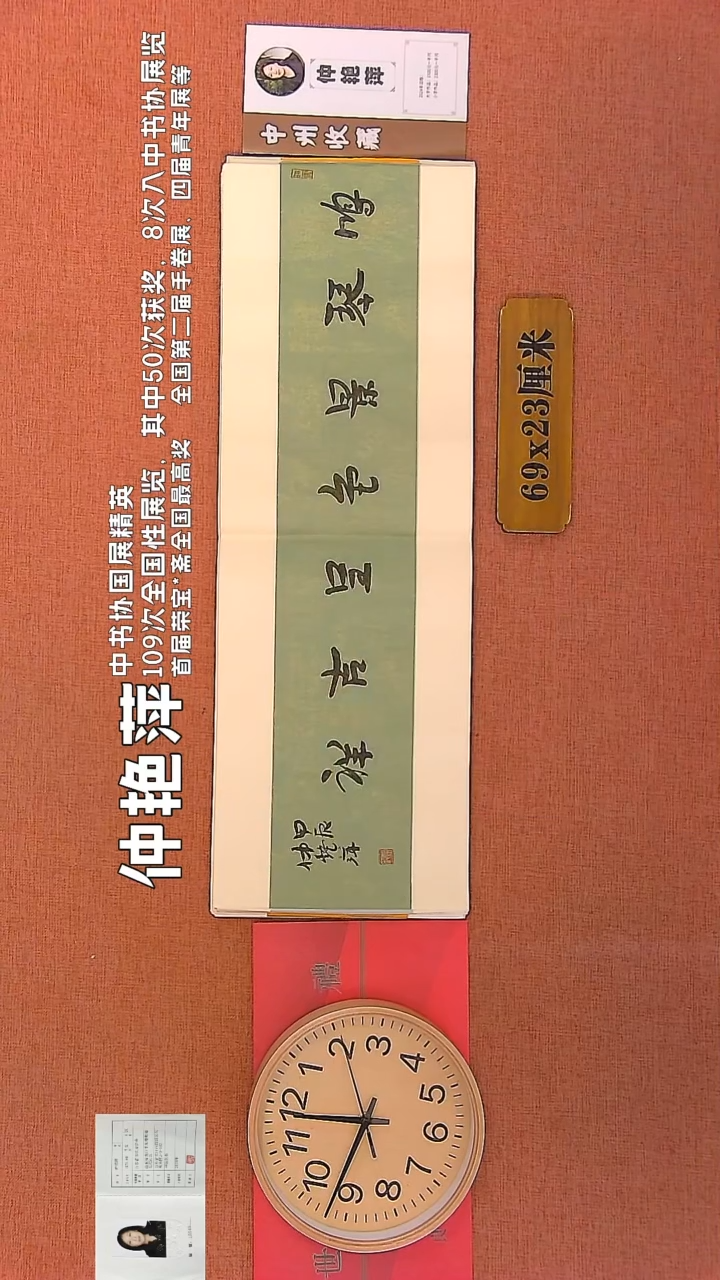 仲艳萍
中书协国展精英
109次全国性展览，其中50次获奖，8次入中书协展览
首届荣宝*斋全国最高奖 全国第二届手卷展、四届青年展等
鸣琴景
呈吉祥
甲辰
仲艳萍
仲艳萍
中州收藏
69x23厘米
世
禮
12
1
2
3
4
5
6
7
8
9
10
11